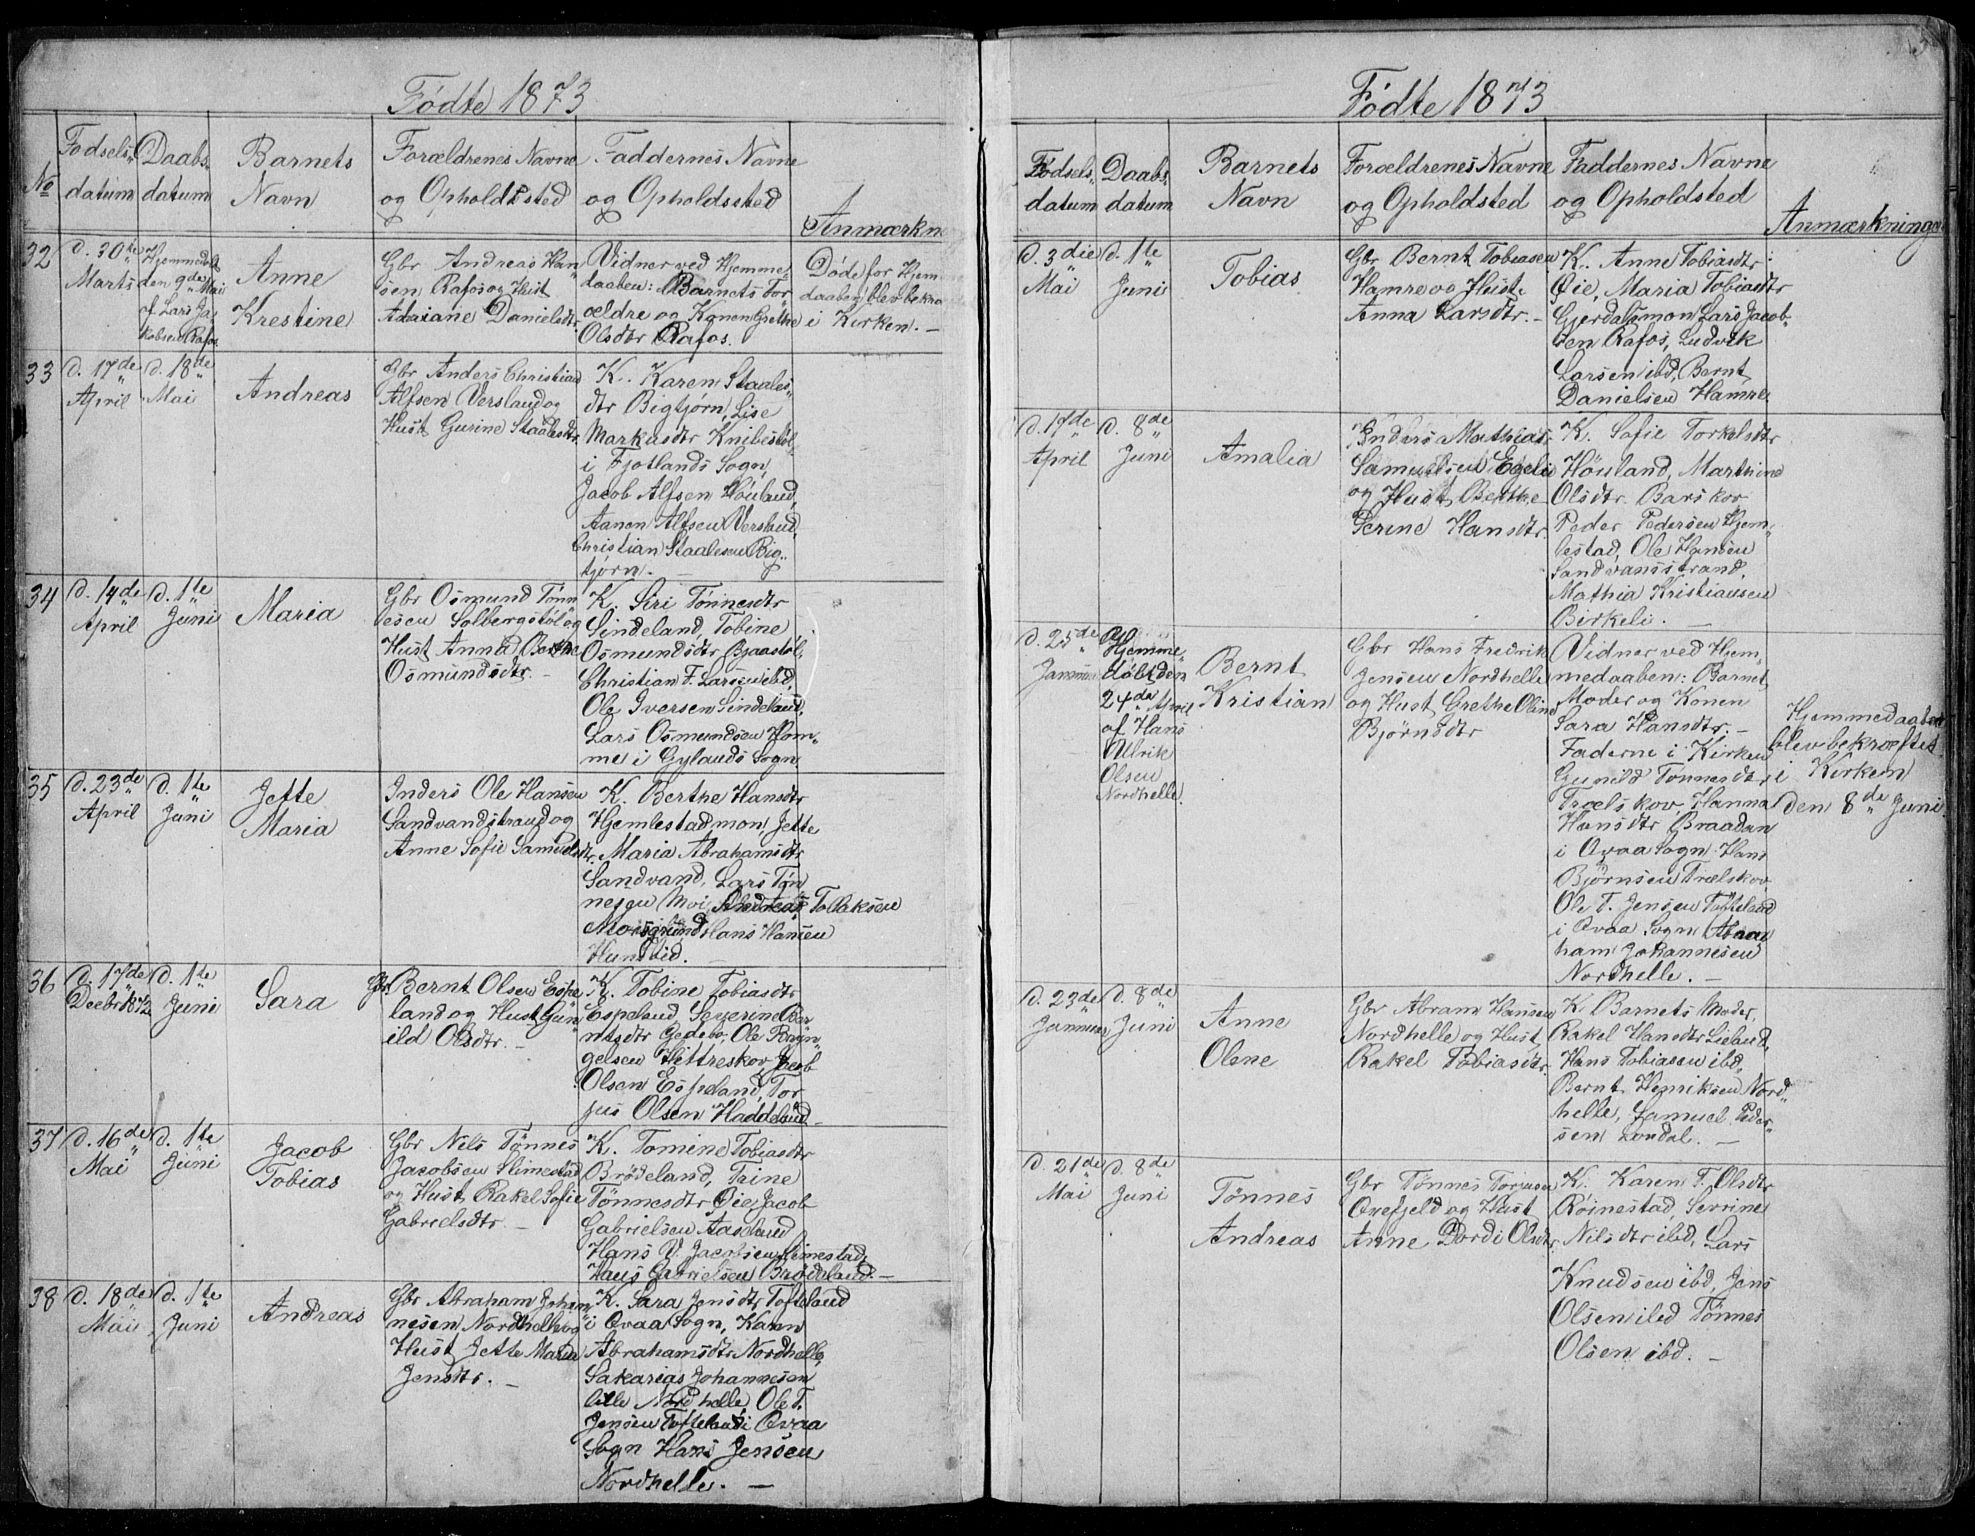 Fødte 1873
No
Fødsels-
datum
Daabs-
datum
Barnets
Navn
Forældrenes Navne
og Opholdssted
Faddernes Navne
og Opholdssted
Anmærkn
32
d. 30te
Marts
Hjemmedøbt
den 9de Mai
af Lars Ja-
kobsen Rafos
Anne
Krestine
Gbr Andreas Han
sen Rafos og Hust
Adriane Danielsdtr
Vidner ved Hjemme-
daaben: Barnets For
ældre og Konen Grethe
Olsdtr Rafos.
Døde for Hjem
daaben blev bekræ
i Kirken. -
33
d. 17de
April
d. 18de
Mai
Andreas
Gbr Anders Christian
Alfsen Versland og
Hust Gurine Staalesdtr
K. Karen Staales-
dtr Bigtjørn, Lise
Markusdtr Knibestøl
i Fjotlands Sogn,
Jacob Alfsen Høiland,
Aanen Alfsen Versland,
Christian Staalesen Big-
tjørn. -
34
d. 14de
April
d. 1te
Juni
Maria
Gbr Osmund Tønn
esen Solbergstøl og
Hust Anna Berthe
Osmundsdtr. -
K. Siri Tønnesdtr
Sindeland, Tobine
Osmundsdtr Bjaastøl
Christian F. Larssen ibd,
Ole Iversen Sindeland,
Lars Osmundsen Hom-
me i Gylands Sogn
35
d. 23de
April
d. 1te
Juni
Jette
Maria
Inders Ole Hansen
Sandvandstrand og
Anne Sofie Samuelsdtr
K. Berthe Hansdtr
Hjemlestadmon, Jette
Maria Abrahamsdtr
Sandvand, Lars Tøn
nesen Moi, Andreas Tollaksen
Moisgrund Hans Hansen
Hundlid. -
36
d. 17de
Decbr 1872
d. 1te
Juni
Sara
Gbr. Bernt Olsen Espe
land og Hust Gun
ild Olsdtr. -
K. Tobine Tobiasdtr
Espeland, Severine Ber
ntsdtr Gedebo, Ole Røyn-
gelsen Hittreskov, Jacob
Olsen Espeland, Tor
jus Olsen Haddeland -
37
d. 16de
Mai
d. 1te
Juni
Jacob
Tobias
Gbr Nils Tønnes
Jacobsen Slimestad
og Hust Rakel Sofie
Gabrielsdtr. -
K. Tomine Tobiasdtr
Brødeland, Trine
Tønnesdtr Øie, Jacob
Gabrielsen Aaseland
Hans V. Jacobsen Slimestad,
Hans Gabrielsen Brødeland. -
38
d. 18de
Mai
d. 1te
Juni
Andreas
Gbr Abraham Johan-
nesen Nordhelle og
Hust Jette Maria
Jensdtr. -
K. Sara Jensdtr Tofteland
i Qvaa Sogn, Karen
Abrahamsdtr Nordhelle,
Sakarias Johannesen
lille Nordhelle, Ole T.
Jensen Tofteland i Qvaa
Sogn Hans Jensen
Nordhelle. -
Fødte 1873
Fødsels-
datum
Daabs-
datum
Barnets
Navn
Forældrenes Navne
og Opholdsted
Faddernes Navne
og Opholdsted
Anmærkninger
d. 3die
Mai
d. 1te
Juni
Tobias
Gbr Bernt Tobiasen
Hamre og Hust.
Anna Larsdtr. -
K. Anne Tobiasdtr
Øie, Maria Tobiasdtr
Gjerdalsmon Lars Jacob-
sen Rafos, Ludvik
Larsen ibd, Bernt
Danielsen Hamre
d. 17de
April
d. 8de
Juni
Amalia
Inders Mathias
Samuelsen Egelie
og Hust Berthe
Serine Hansdtr.
K. Sofie Torkelsdtr
Høiland, Marthine
Olsdtr Barskov
Peder Pedersen Hjem-
lestad, Ole Hansen
Sandvansstrand,
Mathia Kristiansen
Birkeli. -
d. 25de
Januar
Hjemme-
døbt den
24de April
af Hans
Ulrik
Olsen
Nordhelle.
Bernt
Kristian
Gbr Hans Fredrik
Jensen Nordhelle
og Hust Grethe Oline
Bjørnsdtr
Vidner ved Hjem-
medaaben: Barnets
Moder og Konen
Sara Hansdtr. -
Faderne i Kirken
Gunild Tønnesdtr
Trælskov, Hanna
Hansdtr Braaden
i Qvaa Sogn, Hans
Bjørnsen Trælskov,
Ole T. Jensen Tofteland
i Qvaa Sogn Abra
ham Johannesen
Nordhelle. -
Hjemmedaaben
blev bekræftet
i Kirken
den 8de Juni
d. 23de
Januar
d. 8de
Juni
Anne
Olene
Gbr Abram Hansen
Nordhelle og Hust
Rakel Tobiasdtr.
K Barnets Moder,
Rakel Hansdtr Lieland,
Hans Tobiasen ibd,
Bernt Henriksen Nord-
helle, Samuel Peder-
sen Londal. -
d. 21de
Mai
d. 8de
Juni
Tønnes
Andreas
Gbr Tønnes Torjusen
Qvefjeld og Hust
Anne Dordi Olsdtr
K. Karen T. Olsdtr
Røinestad, Serine
Nilsdtr ibd, Lars
Knudsen ibd, Jens
Olsen ibd Tønnes
Olsen ibd. -